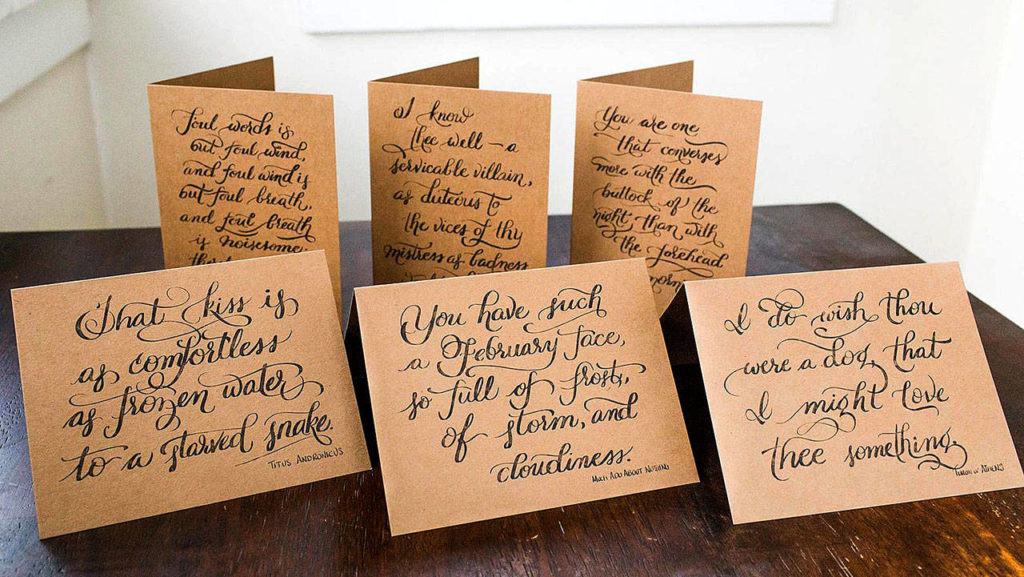 Foul words is
but foul wind,
and foul wind is
but foul breath,
and foul breath
is noisome
I know
thee well — a
servicable villain,
as duteous to
the vices of thy
mistress as badness
You are one
that converses
more with the
buttock of the
night than with
the forehead
That kiss is
as comfortless
as frozen water
to a starved snake.
TITUS ANDRONICUS
You have such
a February face,
so full of frost,
of storm, and
cloudiness.
MUCH ADO ABOUT NOTHING
I do wish thou
were a dog, that
I might love
thee something.
TIMON OF ATHENS